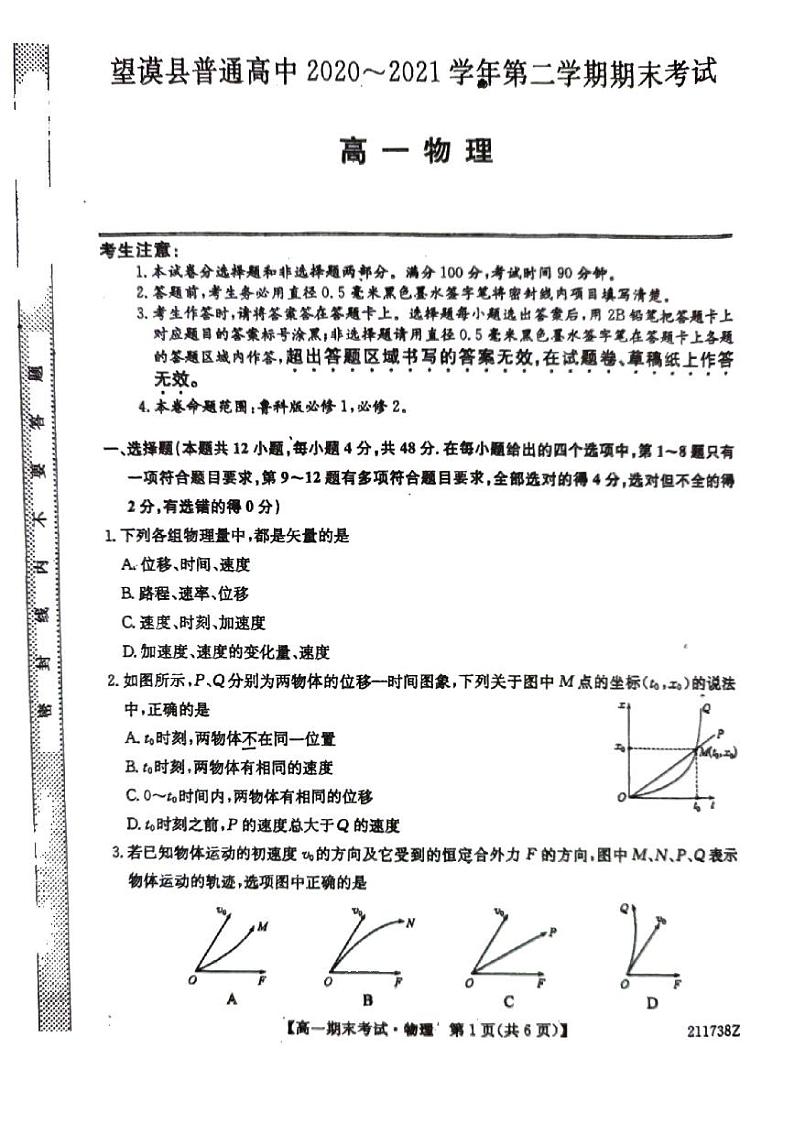 望谟县普通高中 2020～2021 学年第二学期期末考试
高 一 物 理
考生注意：
1. 本试卷分选择题和非选择题两部分。满分 100 分,考试时间 90 分钟。
2. 答题前,考生务必用直径 0.5 毫米黑色墨水签字笔将密封线内项目填写清楚。
3. 考生作答时,请将答案答在答题卡上。选择题每小题选出答案后,用 2B 铅笔把答题卡上
对应题目的答案标号涂黑;非选择题请用直径 0.5 毫米黑色墨水签字笔在答题卡上各题
的答题区域内作答,超出答题区域书写的答案无效,在试题卷、草稿纸上作答
无效。
4. 本卷命题范围:鲁科版必修 1,必修 2。
一、选择题(本题共 12 小题,每小题 4 分,共 48 分. 在每小题给出的四个选项中,第 1~8 题只有
一项符合题目要求,第 9~12 题有多项符合题目要求,全部选对的得 4 分,选对但不全的得
2 分,有选错的得 0 分)
1. 下列各组物理量中,都是矢量的是
A. 位移、时间、速度
B. 路程、速率、位移
C. 速度、时刻、加速度
D. 加速度、速度的变化量、速度
2. 如图所示,P、Q 分别为两物体的位移—时间图象,下列关于图中 M 点的坐标(t₀,x₀)的说法
中,正确的是
A. t₀时刻,两物体不在同一位置
B. t₀时刻,两物体有相同的速度
C. 0~t₀时间内,两物体有相同的位移
D. t₀时刻之前,P 的速度总大于 Q 的速度
x
Q
P
x₀
M(t₀,x₀)
O
t₀
t
3. 若已知物体运动的初速度 v₀的方向及它受到的恒定合外力 F 的方向,图中 M、N、P、Q 表示
物体运动的轨迹,选项图中正确的是
v₀ M O F
v₀ N O F
v₀ P O F
Q v₀ O F
A B C D
【高一期末考试·物理 第 1 页(共 6 页)】
211738Z
密 封 线 内 不 要 答 题